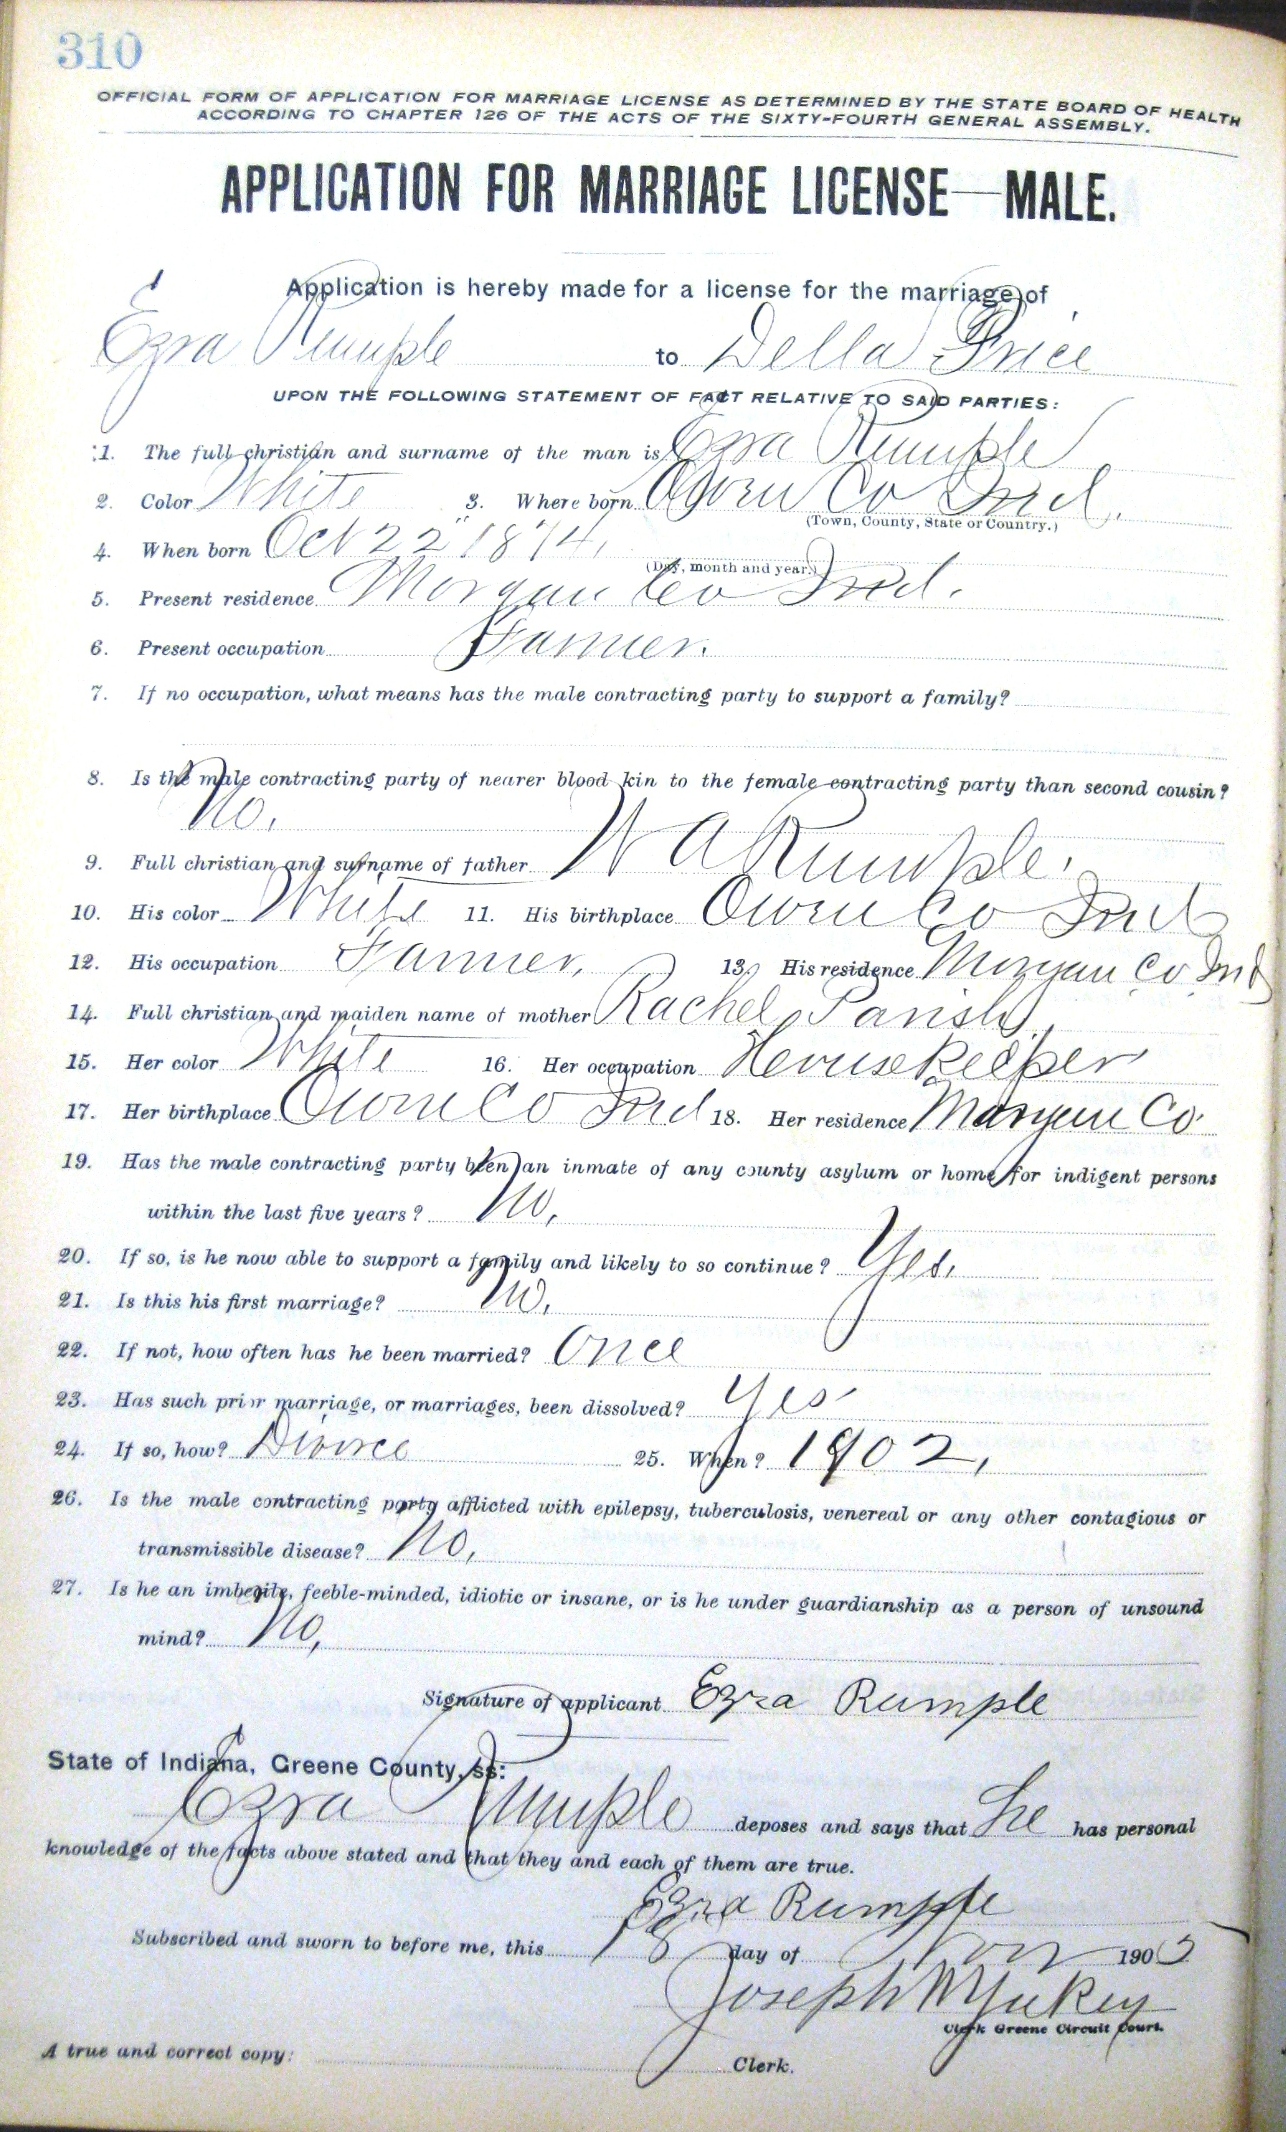 310
OFFICIAL FORM OF APPLICATION FOR MARRIAGE LICENSE AS DETERMINED BY THE STATE BOARD OF HEALTH
ACCORDING TO CHAPTER 126 OF THE ACTS OF THE SIXTY-FOURTH GENERAL ASSEMBLY.
APPLICATION FOR MARRIAGE LICENSE—MALE.
Application is hereby made for a license for the marriage of
Ezra Rumple to Della Price
UPON THE FOLLOWING STATEMENT OF FACT RELATIVE TO SAID PARTIES:
1. The full christian and surname of the man is Ezra Rumple
2. Color White 3. Where born Owen Co Ind.
(Town, County, State or Country.)
4. When born Oct 22" 1874,
(Day, month and year.)
5. Present residence Morgan Co Ind.
6. Present occupation Farmer.
7. If no occupation, what means has the male contracting party to support a family?
8. Is the male contracting party of nearer blood kin to the female contracting party than second cousin?
No.
9. Full christian and surname of father W A Rumple.
10. His color White 11. His birthplace Owen Co Ind
12. His occupation Farmer, 13. His residence Morgan Co Ind
14. Full christian and maiden name of mother Rachel Parish,
15. Her color White 16. Her occupation House Keeper
17. Her birthplace Owen Co Ind 18. Her residence Morgan Co.
19. Has the male contracting party been an inmate of any county asylum or home for indigent persons
within the last five years? No,
20. If so, is he now able to support a family and likely to so continue? Yes,
21. Is this his first marriage? No,
22. If not, how often has he been married? Once
23. Has such prior marriage, or marriages, been dissolved? Yes
24. If so, how? Divorce 25. When? 1902,
26. Is the male contracting party afflicted with epilepsy, tuberculosis, venereal or any other contagious or
transmissible disease? No,
27. Is he an imbecile, feeble-minded, idiotic or insane, or is he under guardianship as a person of unsound
mind? No,
Signature of applicant Ezra Rumple
State of Indiana, Greene County, ss:
Ezra Rumple deposes and says that he has personal
knowledge of the facts above stated and that they and each of them are true.
Ezra Rumple
Subscribed and sworn to before me, this 18 day of Nov 1905
Joseph W Yakey
Clerk Greene Circuit Court.
A true and correct copy: Clerk.